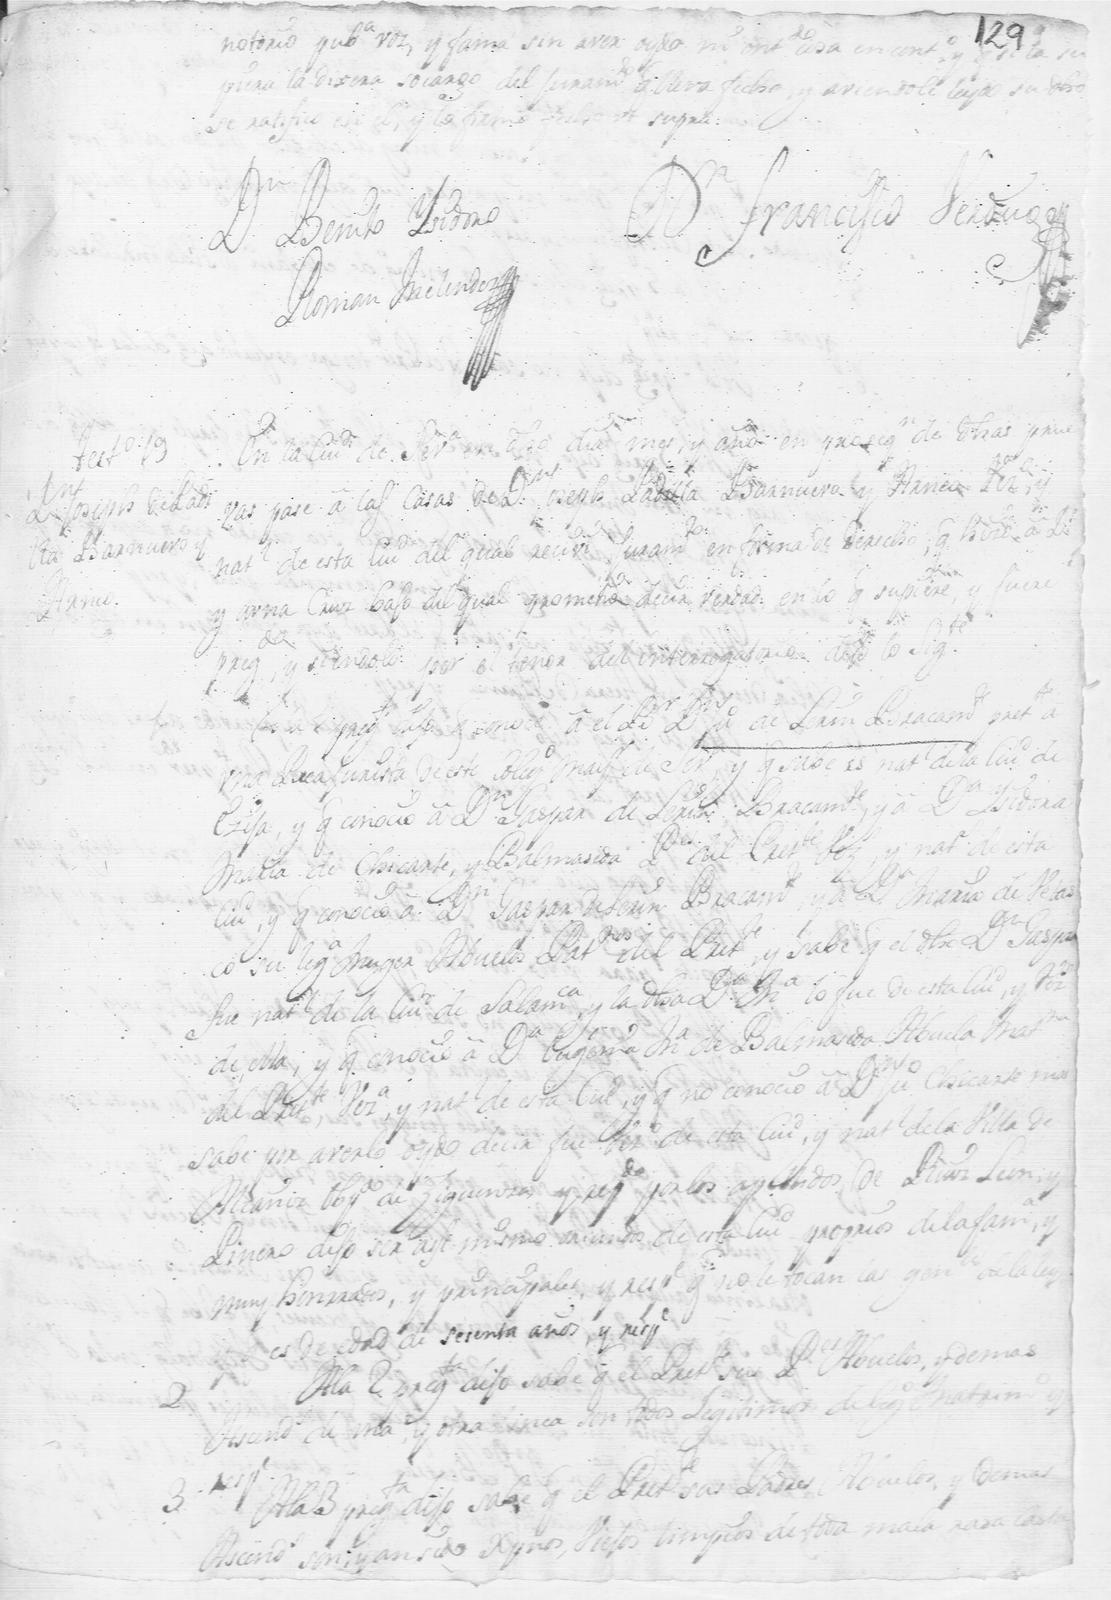 129
notorio pub.ª voz, y fama sin aver oydo ni ent.do cosa en cont.º y q si la su
piera la dixera socargo del juram.to q lleva fecho, y aviendole leydo su dho
se ratificó en el, y lo firmó fecho ut supra.
D.n Benito Ysidoro
Roman Melendez
D.n Francisco Verdugo
Test.º 19
D.n Joseph de Padi
lla Barnuevo y
Arneu.
En la Ciu.d de Sev.ª en dho dia mes, y año en prosecu.n de dhas prue
vas pase â las Casas de D.n Joseph Padilla Barnuevo y Arneu Vez.º, y
nat.l de esta Ciu.d del qual recivi juram.to en forma de derecho q hizo â D.s
y a una Cruz bajo del qual prometio decir verdad en lo q supiere, y fuere
preg.do, y siendolo por el tenor del interrogatorio dijo lo sig.te
preg.ta dijo q conoce â el D.n de Bracam.te pret.te a
una Beca Jurista de este Coleg.º may.r de Sev.ª, y q save es nat.l de la Ciu.d de
Ezija, y q conocio â D.n Gaspar de Bracam.te, y â D.ª Ysidora
Maria de Chicarte, y Balmaseda P.es del Pret.te Vez.s y nat.l de esta
Ciu.d, y q conocio â D.n Gaspar de Bracam.te, y â D.ª Maria de Velas
co su leg.ª Muger Abuelos Pat.nos del Pret.te, y save q el dho D.n Gaspar
fue nat.l de la Ciu.d de Salam.ca, y la dha D.ª M.ª lo fue de esta Ciu.d, y Vez.os
de ella, y q conocio â D.ª Eugenia M.ª de Balmaseda Abuela Mat.na
del Pret.te, Vez.ª, y nat.l de esta Ciu.d, y q no conocio â D.n Chicarte mas
save por averlo oydo decir fue Vez.º de esta Ciu.d, y nat.l de la Villa de
de y preg.do por los apellidos de Leon, y
Pinero dijo ser asi mismo oriundos de esta Ciu.d proprios de la fam.ª, y
muy honrrados, y principales, y resp.e q no le tocan las gen.les de la ley
es de edad de sesenta años, y resp.e
2 A la 2 preg.ta dijo save q el Pret.te sus P.es Abuelos, y demas
Ascend.s de una, y otra linea son todos Legitimos de leg.º Matrim.º y
resp.e
3 A la 3 preg.ta dijo save q el Pret.te sus Padres, Abuelos, y demas
Ascend.s son, y an sido Xpnos, Viejos limpios de toda mala raza casta